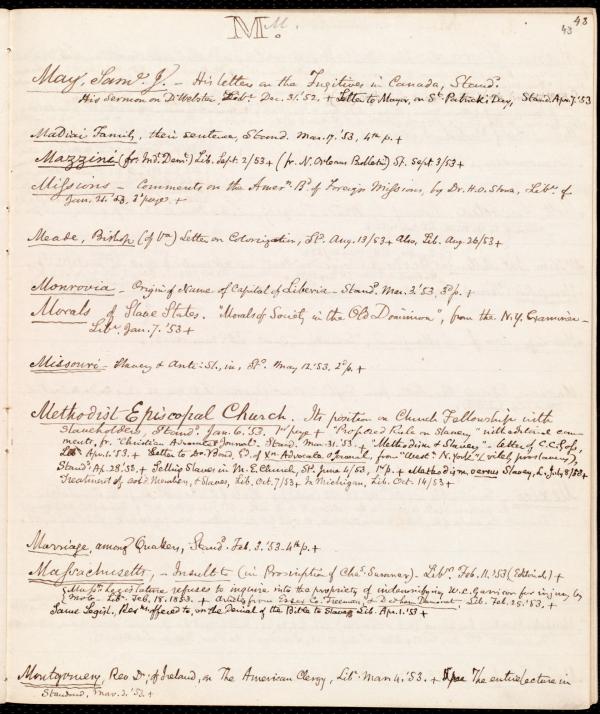 M. M. 43
43
May, Saml. J. – His letters on the Fugitives in Canada, Stand.
His Sermon on D. Webster, Libr. Dec. 31. '52. + Letter to Mayor, on St. Patrick's Day, Stand. Apr. 7. '53
Madiai Family, their sentence, Stand. Mar. 17. '53, 4th p. +
Mazzini (fr. Ind. Demt.) Lib. Sept. 2/53 + (fr. N. Orleans Bulletin) St. Sept 3/53 +
Missions – Comments on the Amern. Bd. of Foreign Missions, by Dr. H. O. Stone, Libr. of
Jan. 21. '53, 3d page. +
Meade, Bishop (of Va.) Letter on Colonization, Sd. Aug. 13/53 + Also, Lib. Aug. 26/53 +
Monrovia – Origin of Name of Capital of Liberia – Stand. Mar. 3. '53, 3d p. +
Morals of Slave States. "Morals of Society in the Old Dominion", from the N.Y. Examiner –
Libr. Jan. 7. '53 +
Missouri – Slavery & Anti-Sl., in, Sd. May 12. '53. 2d p. +
Methodist Episcopal Church. Its position on Church Fellowship with
Slaveholders, Stand. Jan. 6. '53. 1st page + "Proposed Rule on Slavery" with editorial com-
ments, fr. "Christian Advocate & Journal". Stand. Mar. 31. '53. + "Methodism & Slavery" – letter of C. C.
Libr. Apr. 1. '53. + Letter to Dr. Bond, Ed. of Xn. Advocate & Journal, from "West N. York" (vilely proslavery),
Stand. Ap. 28. '53. + Selling Slaves in M. E. Church, St. June 4/53, 1st p. + Methodism versus Slavery, L. July 8/53 +
Treatment of cold Members, & Slaves, Lib. Oct. 7/53 + In Michigan, Lib. Oct. 14/53 +
Marriage, among Quakers, Stand. Feb. 3. '53 – 4th p. +
Massachusetts, – Insult to (in Proscription of Chas. Sumner) – Libr. Feb. 11. '53 (Editorial) +
Mass. Legislature refuses to inquire into the propriety of indemnifying W. L. Garrison for injury by
Mob – Libr. Feb. 18. 1853. + Articles from Essex Co. Freeman, & Dedham Democrat, Lib. Feb. 25. '53. +
Same Legisl., Res. offered to, on the Denial of the Bible to Slaves Lib. Apr. 1. '53 +
Montgomery, Rev. Dr., of Ireland, on The American Clergy, Libr. Mar. 4. '53. + The entire lecture in
Standard, Mar. 3. '53. +